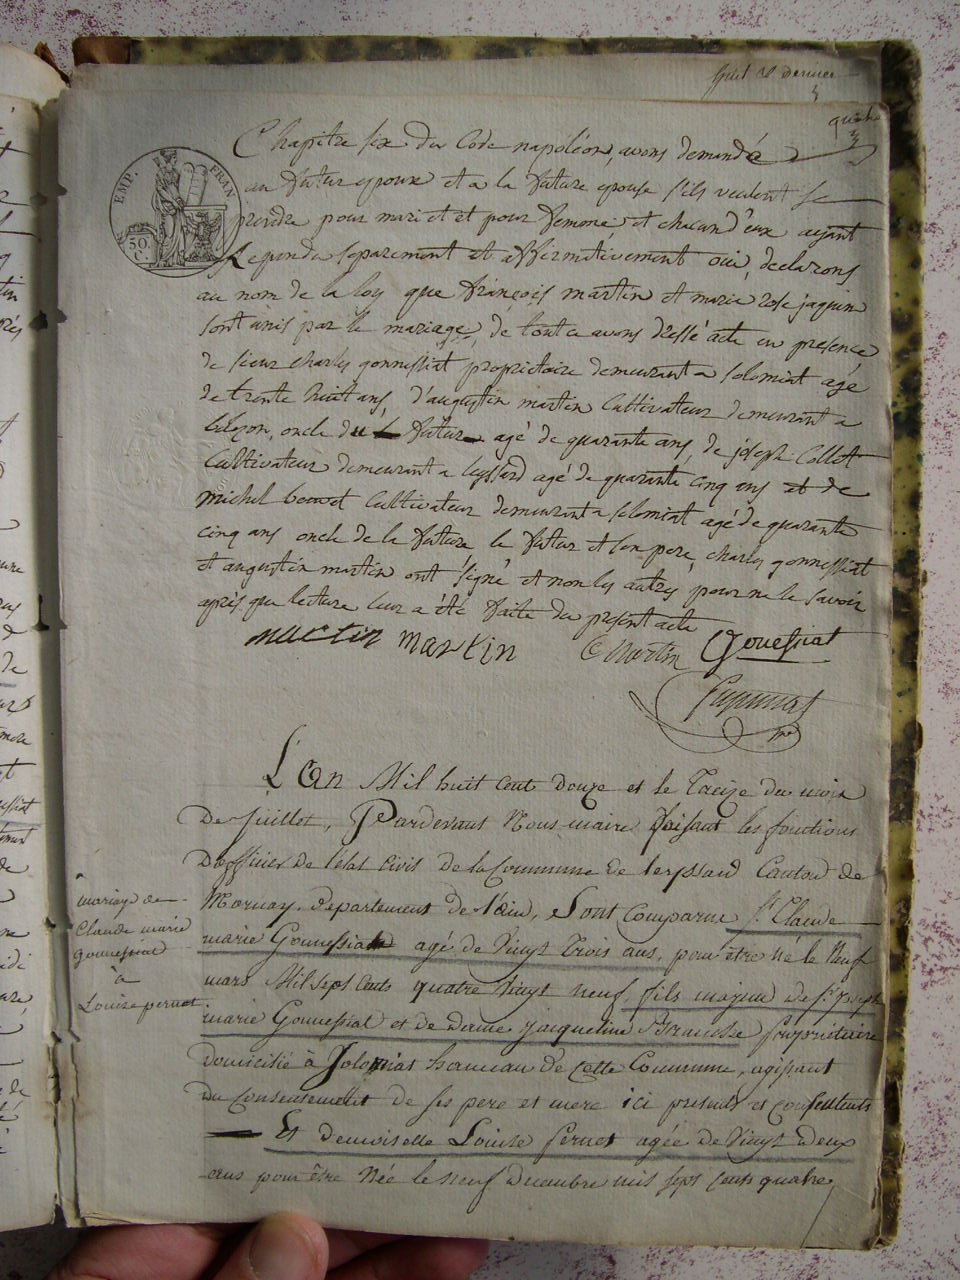 huit et dernier
quatre
Chapitre six du Code napoléon, avons demandé
au futur epoux et a la future epouse s'ils veulent se
prendre pour mari et et pour femme et chacun d'eux ayant
Repondu separement et affirmativement oui, declarons
au nom de la loy que françois martin et marie rose jaquin
sont unis par le mariage, de tout ce avons dressé acte en presence
de sieur charles gonnessiat proprietaire demeurant a solomiat agé
de trente huit ans, d'augustin martin Cultivateur demeurant a
oncle du futur agé de quarante ans, de joseph Collet
Cultivateur demeurant a leyssard agé de quarante cinq ans et de
michel Cultivateur demeurant a solomiat agé de quarante
cinq ans oncle de la future le futur et son pere, charles gonnessiat
et augustin martin ont signé et non les autres pour ne le savoir
après que lecture leur a été faite du present acte
martin martin C Martin Gonessiat
EMP. FRAN
50.
C.
L'an Mil huit cent douze et le treize du mois
De Juillet, Pardevant Nous maire faisant les fonctions
D'officier de l'état Civil de la Commune de Leyssard Canton de
Mornay, departement de l'ain, Sont Comparus Sr. Claude
marie Gonnessiat agé de Vingt trois ans, pour être né le Neuf
mars Mil sept Cents quatre Vingt neuf, fils majeur de Sr. joseph
marie Gonnessiat et de Dame jacqueline proprietaire
Domicilié à Solomiat hameau de Cette Commune, agissant
Du Consentement de ses pere et mere ici presents et Consentents
Et demoiselle Louise Pernet agée de Vingt Deux
ans pour être Née le neuf Decembre mil sept Cents quatre
mariage de
Claude marie
gonnessiat
à
Louise pernet